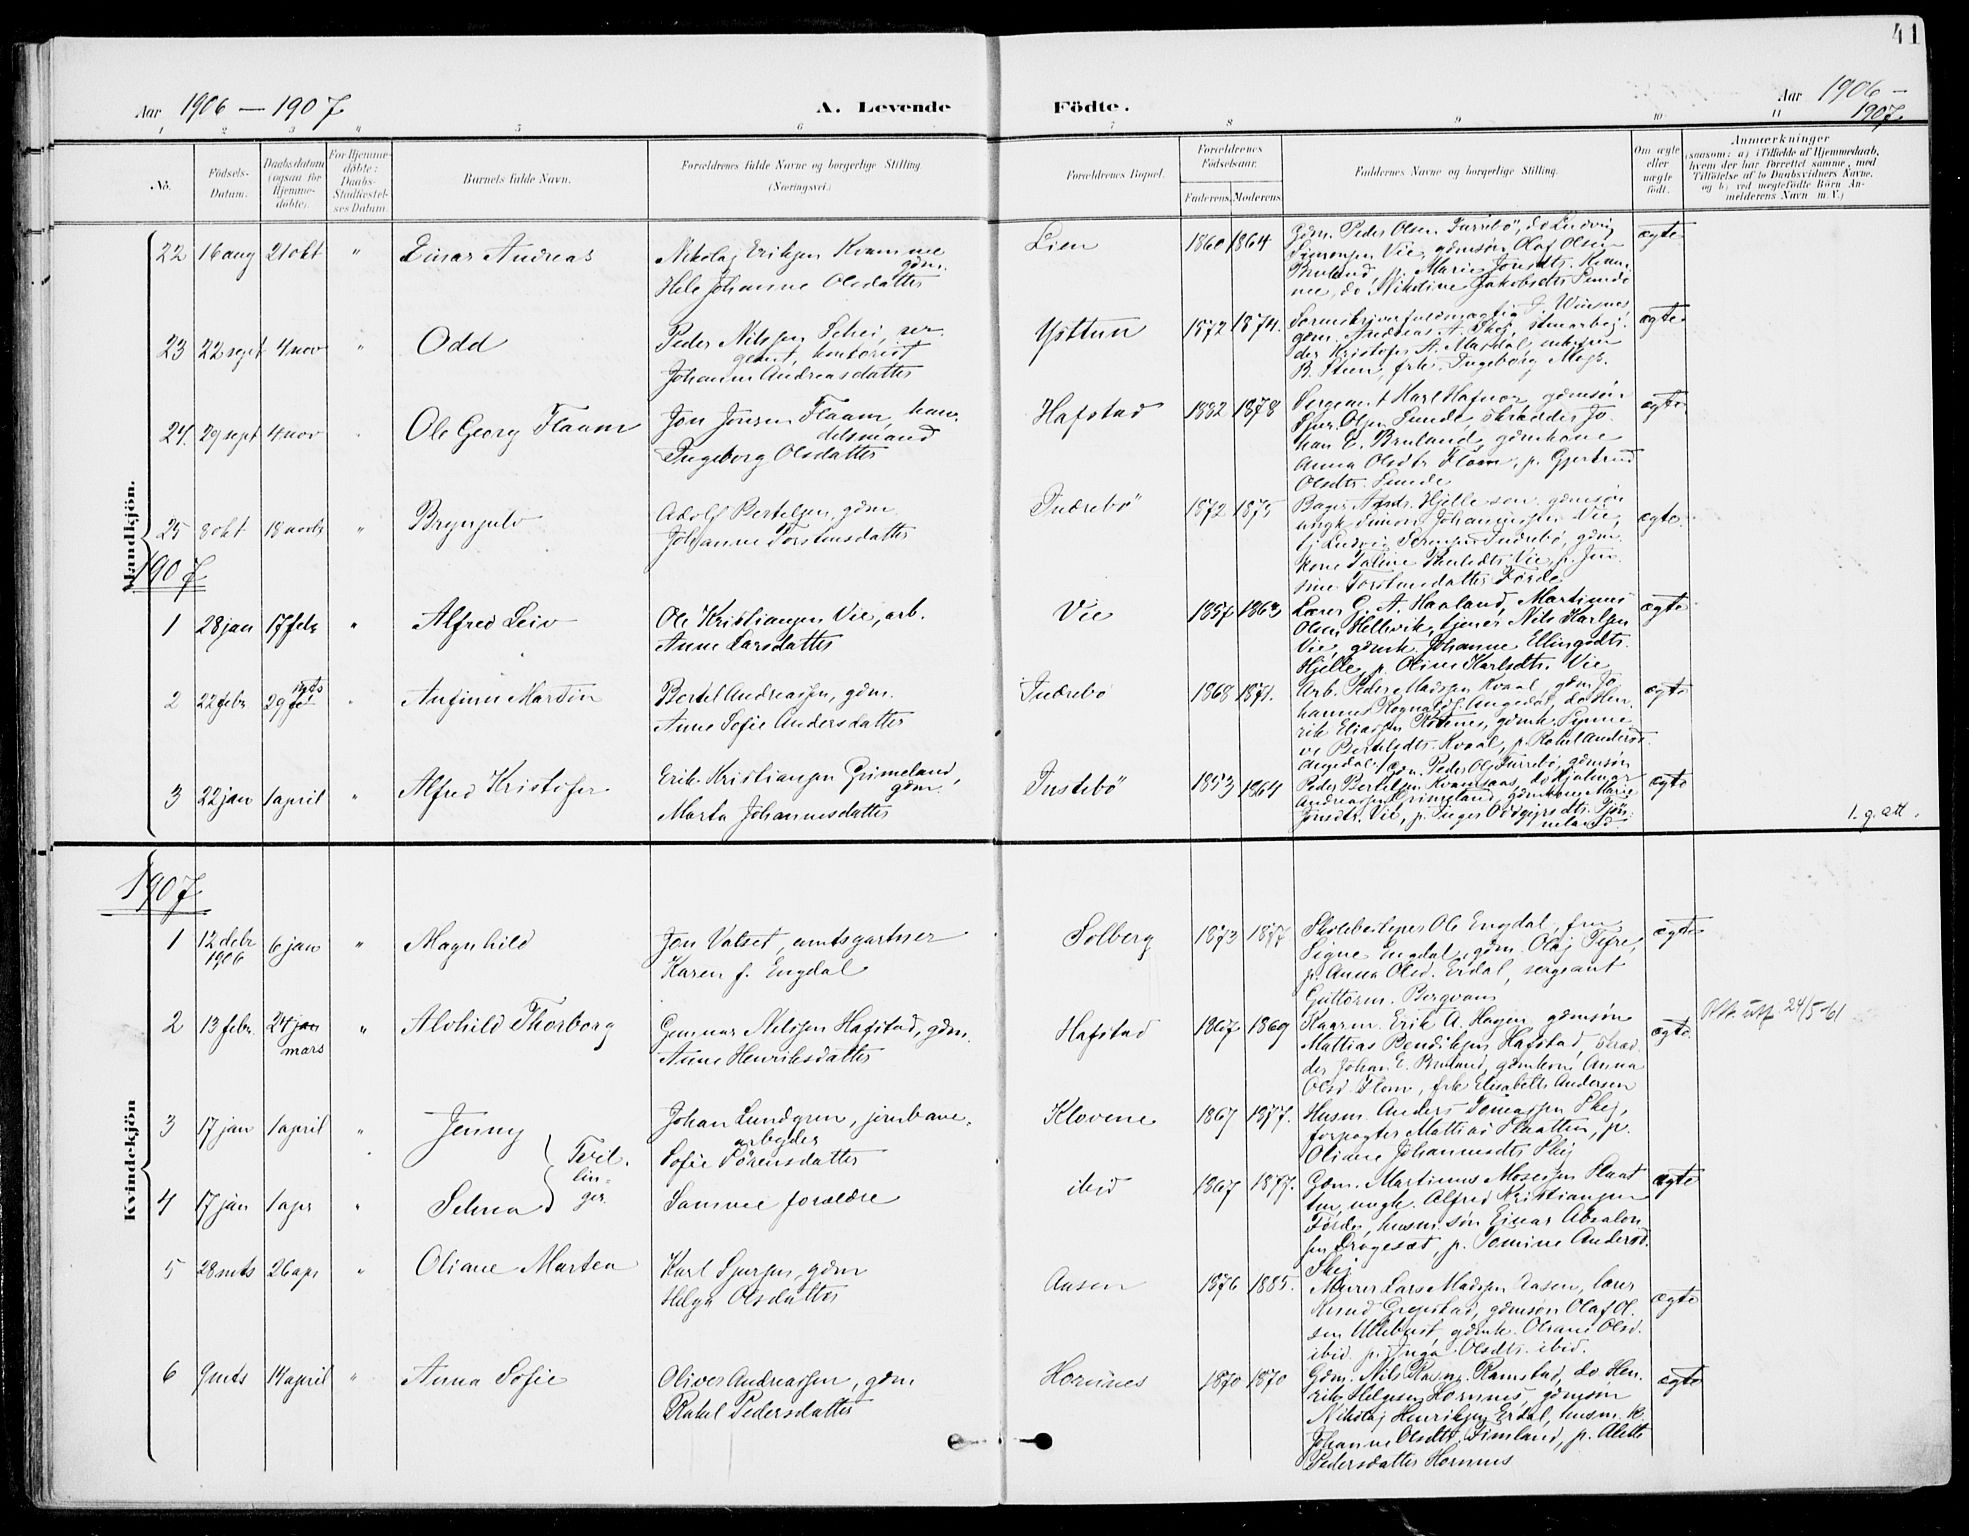 41
Aar 1906 — 1907
A. Levende
Födte.
Aar 1906 –
1907.
1 2 3 " 5 6 7 8 9 10 11
No.
Födsels-
Datum.
Daabsdatum
(ogsaa for
Hjemme-
döbte).
For Hjemme-
döbte:
Daabs-
Stadfæstel-
ses Datum.
Barnets fulde Navn.
Forældrenes fulde Navne og borgerlige Stilling.
(Næringsvei.)
Forældrenes Bopæl.
Forældrenes
Födselsaar.
Faderens. Moderens.
Faddernes Navne og borgerlige Stilling.
Om ægte
eller
uægte
födt.
Anmærkninger
(saasom: a) i Tilfælde af Hjemmedaab,
hvem der har forrettet samme, med
Tilföielse af to Daabsvidners Navne,
og b) ved uægtefödte Börn An-
melderens Navn m. V.)
Mandkjön.
22 16 aug 21 okt " Einar Andreas
Nikolaj Eriksen Kvamme
gdm.
Hele Johanne Olsdatter
Lien 1860 1864
Gdm. Peder Olsen Furebö, do Ludvig
Sørensen Vie, gdmsøn Olaf Olsen
Bruland, p. Marie Jonsdtr. Kvam-
me, do Nikoline Jakobsdtr Sunde
ægte
23 22 sept 4 nov " Odd
Peder Nilssen Schei, ser-
gent, kontorist
Johanne Andreasdatter
Ysttun 1872 1874.
Sorenskriverfuldmægtig J. Winsnes,
gdm. Andreas A. Skej,
der Kristofer A. Mardal,
B. Steen, frk. Ingeborg
ægte
24. 29 sept 4 nov Ole Georg Flaam
Jon Jonsen Flaam, han-
delsmand
Ingeborg Olsdatter
Hafstad 1882 1878
Sergeant Karl Hafnor, gdmsøn
Sjur Olsen Sunde, skrædder Jo-
han E. Bruland, gdmkone
Anna Olsdtr Flom, p. Gjertrud
Olsdtr. Sunde
ægte
25 8 okt 18 novbr " Brynjulv
Adolf Bertelsen, gdm.
Johanne Torstensdatter
Indrebö 1872 1875
Bager Hjelle
ungk Simon Johannessen Vie,
tj Ludvig Sørensen Indrebö, gdm.
kone Taline Vie, p. Jen-
sine Torstensdatter Førde
ægte
1907
1 28 jan 17 febr " Alfred Leiv
Ole Kristiansen Vie, arb.
Anne Larsdatter
Vie 1857 1863
Lærer G. A. Haaland, Martinus
Olsen Hellevik, tjener Nils Karlsen
Vie, gdmk. Johanne Ellingsdtr.
Hjelle, p. Oline Karlsdtr. Vie
ægte
2 22 febr 29 mts " Anfinn Martin
Bertel Andreassen, gdm.
Anne Sofie Andersdatter
Indrebö 1868 1871.
Arb. Peder Madssen Kvaal, gdm. Jo-
hannes Angedal, do Hen-
rik Eliassen gdmk. Synne-
ve Bertelsdtr. Kvaal, p. Rakel Andersd.
Angedal
ægte
3 22 jan 1 april " Alfred Kristofer
Erik Kristiansen Grimeland,
gdm.
Marta Johannesdatter
Instebö 1853 1864
Gdm. Peder Ols Furebö, gdmsøn
Peder Bertelsen Kvamsaas, do Hjalmar
Andreassen Grimeland, gdmkone Marie
Jonsdtr. Vie, p. Inger Oddgejrsdtr. Tjön-
neland
ægte
1. g. att.
Kvindekjön
1907
1 12 debr 6 jan " Magnhild
1906
Jon Vatset, amtsgartner
Karen f. Engdal
Solberg 1873 1877
Skolebestyrer Ole Engdal, fru
Signe Engdal, gdm. Olaj Tefre,
p. Anna Olsd. Erdal, sergeant
Guttorm. Bergvam
ægte
2 13 febr. 24 jan " Alvhild Thorborg
mars
Gunnar Nilssen Hafstad, gdm.
Anne Henriksdatter
Hafstad 1867 1869
Kaarm. Erik A. Hagen, gdmsøn
Mattias Bendiksen Hafstad, skræd-
der Johan E. Bruland, gdmkone Anna
Olsd. Flom, frk Elisabeth Andersen
ægte.
Attest utst. 24/5-61
3 17 jan 1 april " Jenny
Johan Lundgren, jernbane-
arbejder
Sofie Sörensdatter
Tvil-
lin-
ger.
Klovene 1867 1877.
Husm. Anders Tomassen Skej,
forpagter Mattias Slaatten, p.
Oliane Johannesdtr Skej
4 17 jan 1 apr " Selma
Samme forældre
ibid 1867 1877.
Gdm. Martinus Mosessen Slaat-
ten, ungk. Alfred Kristiansen
Förde, husm. søn Einar Absalon-
sen Drøgeset, p. Tomine Andersd.
Skej
ægte
5 28 mts 26 apr " Oliane Marten
Karl Sjursen, gdm
Helga Olsdatter
Aasen 1876 1885.
Murer Lars Madssen Aasen, lærer
Knud Grepstad, gdmsøn Olaf Ol-
sen Ullebust, gdmk. Oliane Olsd.
ibid p. Inga Olsdtr. ibid.
ægte
6 9 mts 14 april " Anna Sofie
Oliver Andreassen, gdm
Rakel Pedersdatter
Hornnes 1870 1870
Gdm. Nils Rasm. Ramstad, do Hen-
rik Helgesen Hornnes, gdmsøn
Nikolaj Henriksen Erdal, husm. k.
Johanne Olsdtr. Fimland, p. Alette
Pedersdatter Hornnes
ægte